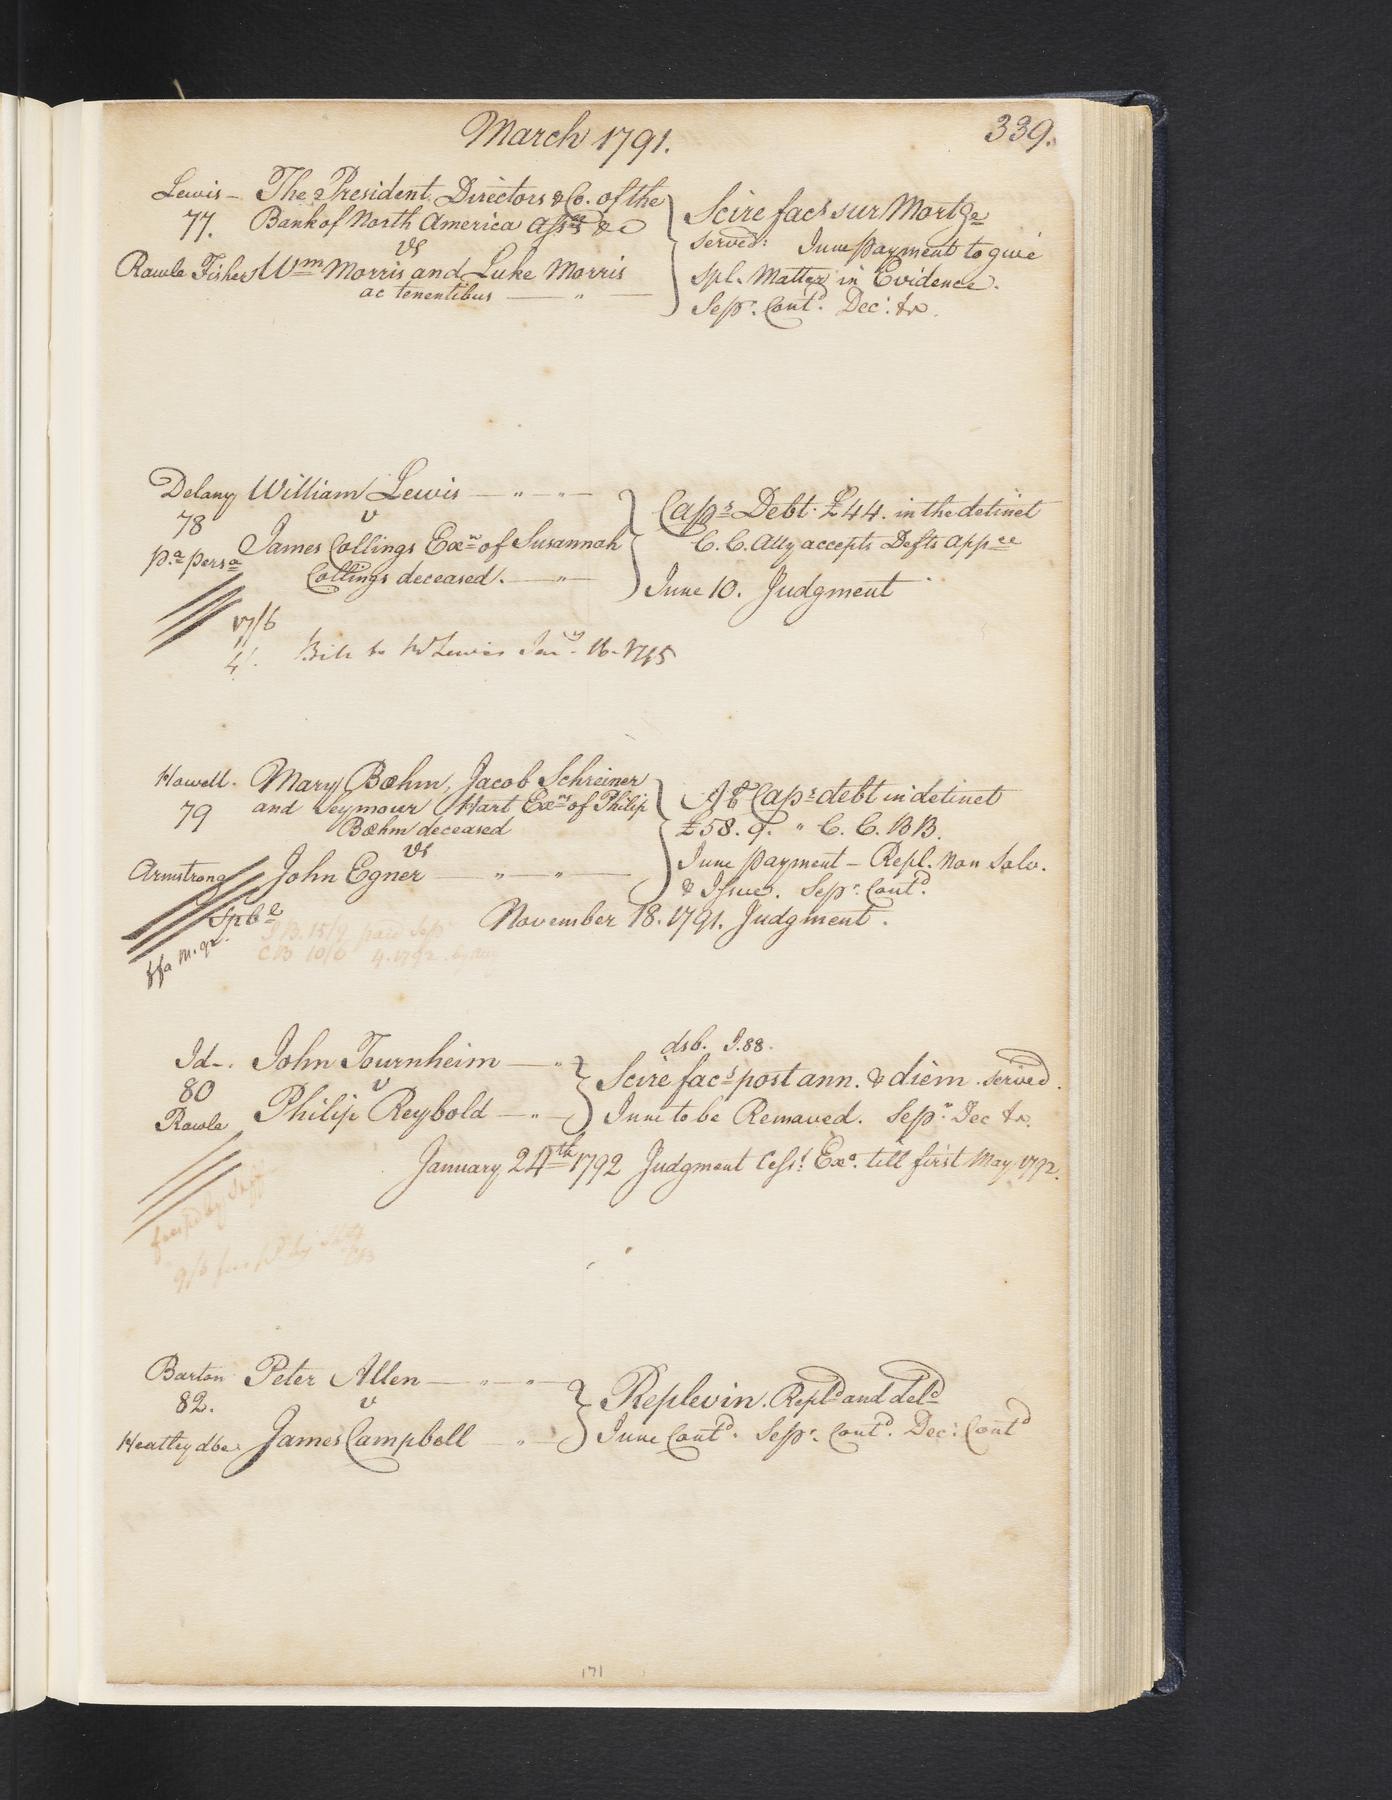 March 1791.
339.
Lewis - The President Directors & Co. of the
77. Bank of North America Ass.ees &c
vs
Rawle Fisher Wm Morris and Luke Morris
ac tenentibus
Scire facs sur Mortge
served: June payment to give
Spl. Matter in Evidence.
Sepr. Contd. Dec: &c.
Delany William Lewis
78 v
James Collings Exr of Susannah
pa persa Collings deceased.
Caps Debt £44. in the detinet
C. C. Atty accepts Defts appce
June 10. Judgment
17/6
4/. Bill to W Lewis Jany. 16. 1795
Howell. Mary Bœhm, Jacob Schreiner
79 and Seymour Hart Exrs of Philip
Bœhm deceased
vs
Armstrong John Egner
A & Caps debt in detinet
£58. 9. " C. C. BB.
June payment - Repl. Non Solv.
& Issue. Sepr. Contd.
November 18. 1791. Judgment.
ffa M. 92.
J B. 15/9 paid Sepr
C B 10/6 4. 1792
Id-. John Tournheim
80 v
Rawle Philip Reybold
dsb. J. 88.
Scire facs post ann. & diem. served.
June to be Removed. Sepr. Dec &c.
January 24th 1792 Judgment Cesst. Exo. till first May 1792.
Barton Peter Allen
82. v
Heatly dbe James Campbell
Replevin. Repld and deld
June Contd. Sepr. Contd. Dec: Contd
171